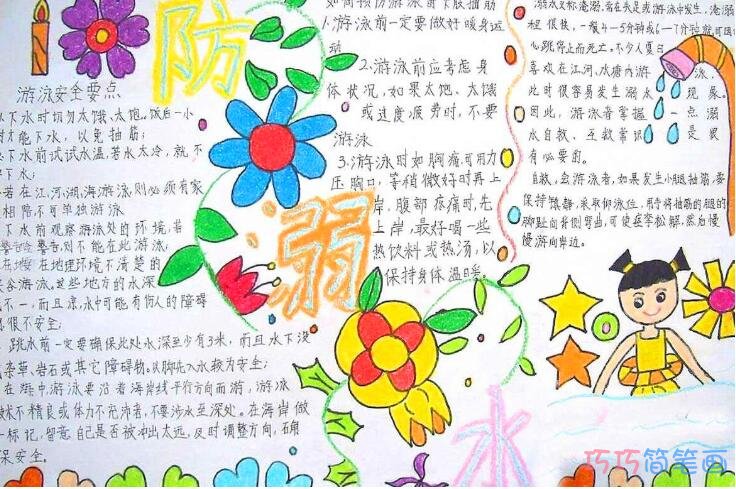 防
溺
水
游泳安全要点
下水时切勿太饿、太饱。饭后一小
时才能下水，以免抽筋；
下水前试试水温，若水太冷，就不
下水；
若在江、河、湖、海游泳，则必须有家
相陪不可单独游泳
下水前观察游泳处的环境，若
警告，则不能在此游泳；
在地理环境不清楚的
谷游泳。这些地方的水深
不一，而且凉，水中可能有伤人的障碍
很不安全；
跳水前一定要确保此处水深至少有3米，而且水下没
杂草、岩石或其它障碍物。以脚先入水较为安全；
在海中游泳，要沿着海岸线平行方向而游，游泳
术不精良或体力不充沛者，不要涉水至深处。在海岸做
标记，留意自己是否被冲出太远，及时调整方向，确
保安全。
1.游泳前一定要做好暖身运
动
2.游泳前应考虑身
体状况，如果太饱、太饿
或过度疲劳时，不要
游泳
3.游泳时如胸痛，可用力
压胸口，等稍微好时再上
岸，腹部疼痛时，先
上岸，最好喝一些
热饮料或热汤，以
保持身体温暖。
程很快，一般4-5分钟或6-7分钟就可因
心跳停止而死亡。不少人夏日
喜欢在江河、水塘内游泳，
此时很容易发生溺水现象。
因此，游泳者掌握一点溺
水自救、互救常识是很
有必要的。
自救，会游泳者，如果发生小腿抽筋，要
保持镇静，采取仰泳位，用手将抽筋的腿的
脚趾向背侧弯曲，可使痉挛松解，然后慢
慢游向岸边。
巧巧简笔画